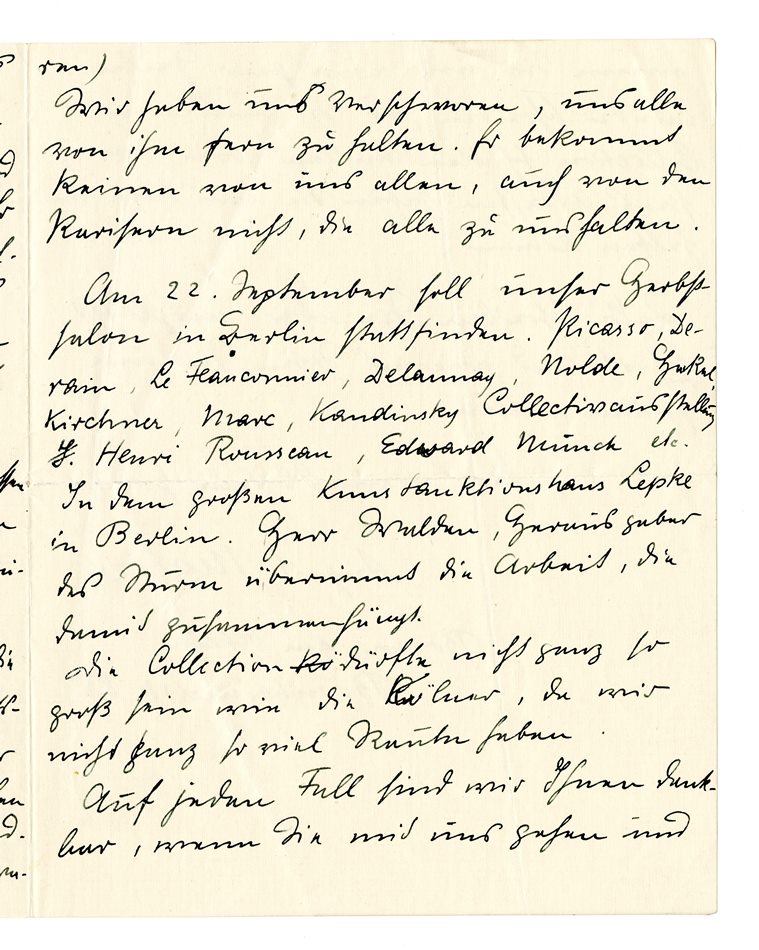 ren)
Wir haben uns verschworen, uns alle
von ihm fern zu halten. Er bekommt
keinen von uns allen, auch von den
Parisern nicht, die alle zu uns halten.
Am 22. September soll unser Herbst-
salon in Berlin stattfinden. Picasso, De-
rain, Le Fauconnier, Delaunay, Nolde,
Kirchner, Marc, Kandinsky Collectivausstellung
H. Henri Rousseau, Edward Munch etc.
In dem großen Kunstauktionshaus Lepke
in Berlin. Herr Walden, Herausgeber
des Sturm übernimmt die Arbeit, die
damit zusammenhängt.
Die Collection dürfte nicht ganz so
groß sein wie die Kölner, da wir
nicht ganz so viel Räume haben.
Auf jeden Fall sind wir Ihnen dank-
bar, wenn Sie mit uns gehen und